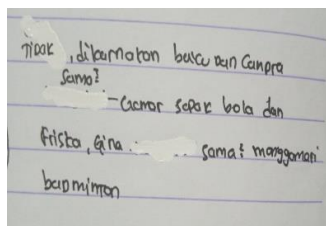 Tidak , dikarnakan baiu dan Canpra
sama²
Gemar sepak bola dan
friska, Gina sama² menggemari
badminton